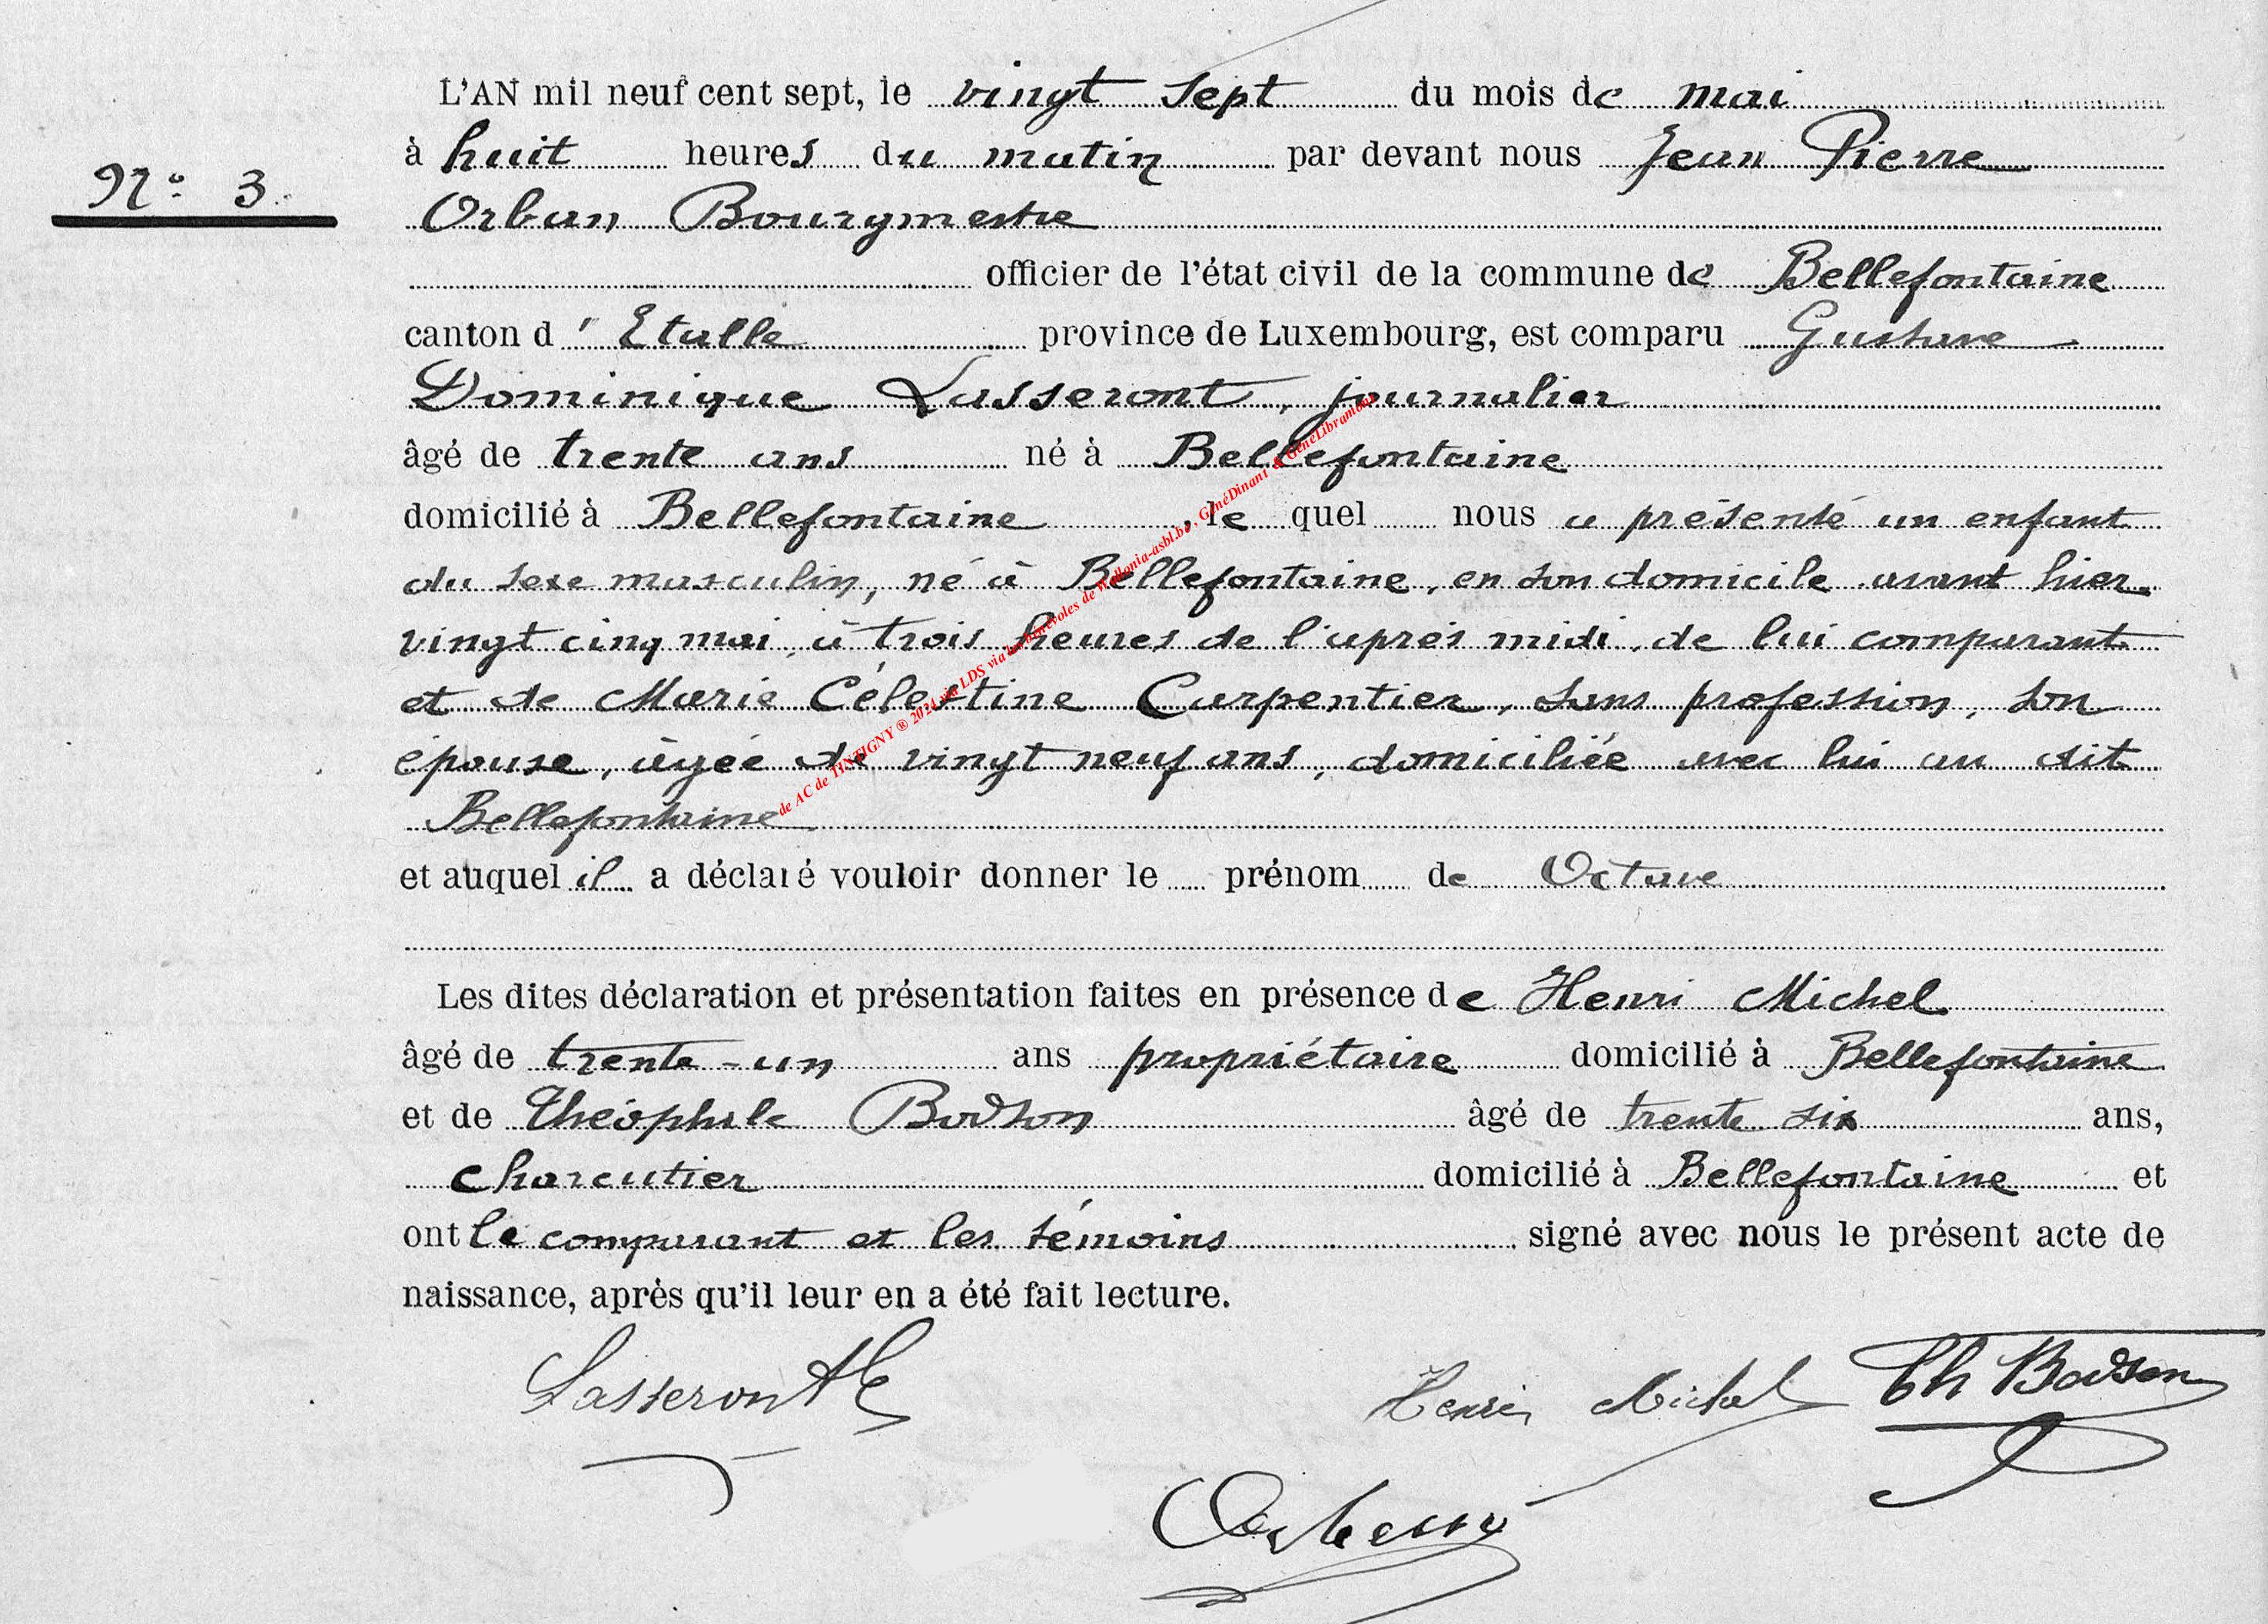 L'AN mil neuf cent sept, le vingt sept du mois de mai
à huit heures du matin par devant nous Jean Pierre
N° 3.
Orban Bourgmestre
officier de l'état civil de la commune de Bellefontaine
canton d' Etalle province de Luxembourg, est comparu Gustave
Dominique Lasseront, journalier
âgé de trente ans né à Bellefontaine
domicilié à Bellefontaine, le quel nous a présenté un enfant
du sexe masculin, né à Bellefontaine, en son domicile avant hier
vingt cinq mai, à trois heures de l'après midi, de lui comparant
et de Marie Célestine Carpentier, sans profession, son
épouse, âgée de vingt neuf ans, domiciliée avec lui au dit
Bellefontaine
et auquel il a déclaré vouloir donner le prénom de Octave
Les dites déclaration et présentation faites en présence de Henri Michel
âgé de trente-un ans propriétaire domicilié à Bellefontaine
et de Théophile Bodson âgé de trente six ans,
charcutier domicilié à Bellefontaine et
ont le comparant et les témoins signé avec nous le présent acte de
naissance, après qu'il leur en a été fait lecture.
Lasseront
Henri Michel Th Bodson
de AC de TINTIGNY ® 2024 via LDS via les bénévoles de Wallonia-asbl.be, GénéDinant & GénéLibramont